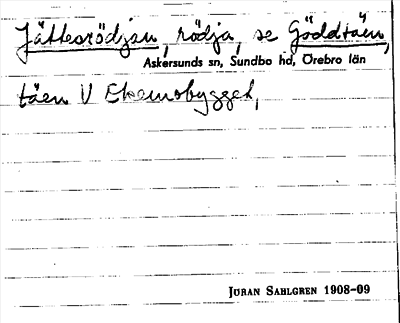 Jättesrödjan, rödja, se Göddtäen,
Askersunds sn, Sundbo hd, Örebro län
täen V Ekemobygget,
JÖRAN SAHLGREN 1908-09